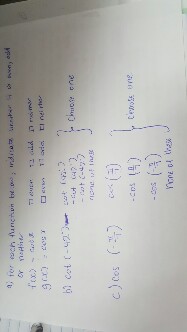 a) For each function below, indicate whether it is even, odd
or neither
f(x) = cos x □ even □ odd □ neither
g(x) = cos x □ even □ odd □ neither
b) cot (-42°)
cot (42°)
-cot (42°)
-cot (-42°)
none of these
Choose one
c) cos
cos
-cos
-cos
None of these
Choose one